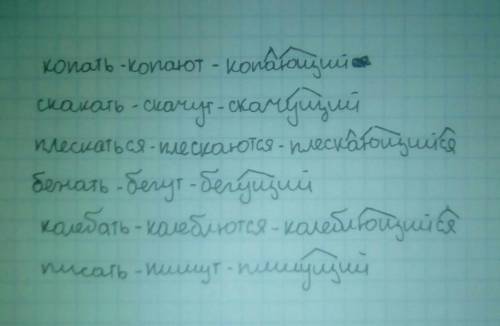 копать - копают - копающий
скакать - скачут - скачущий
плескаться - плескаются - плескающийся
бежать - бегут - бегущий
калебать - колеблются - колеблющийся
писать - пишут - пишущий